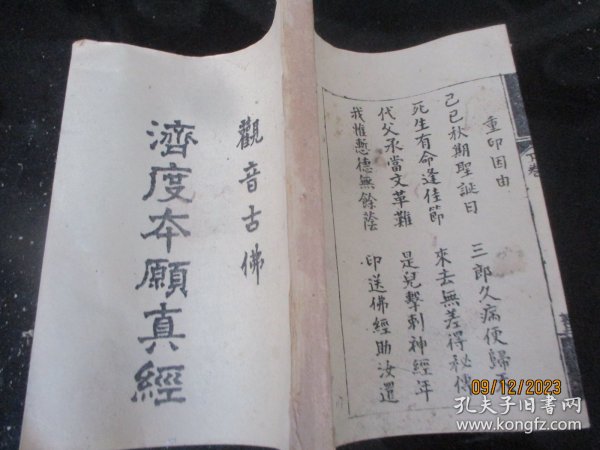 觀音古佛
濟度本願真經
重印因由
己巳秋期聖誕日 三郎久病便歸
死生有命逢佳節 來去無差得秘傳
代父承當文革難 是兒擊刺神經年
我惟慙德無餘蔭 印送佛經助汝還
下卷
09/12/2023
孔夫子旧书网
www.kongfz.com